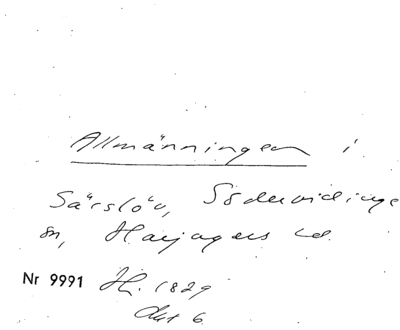 Allmänningen i
Särslöv, Södervidinge
sn, Harjagers hd.
Nr 9991 Hi. 1829
Akt 6